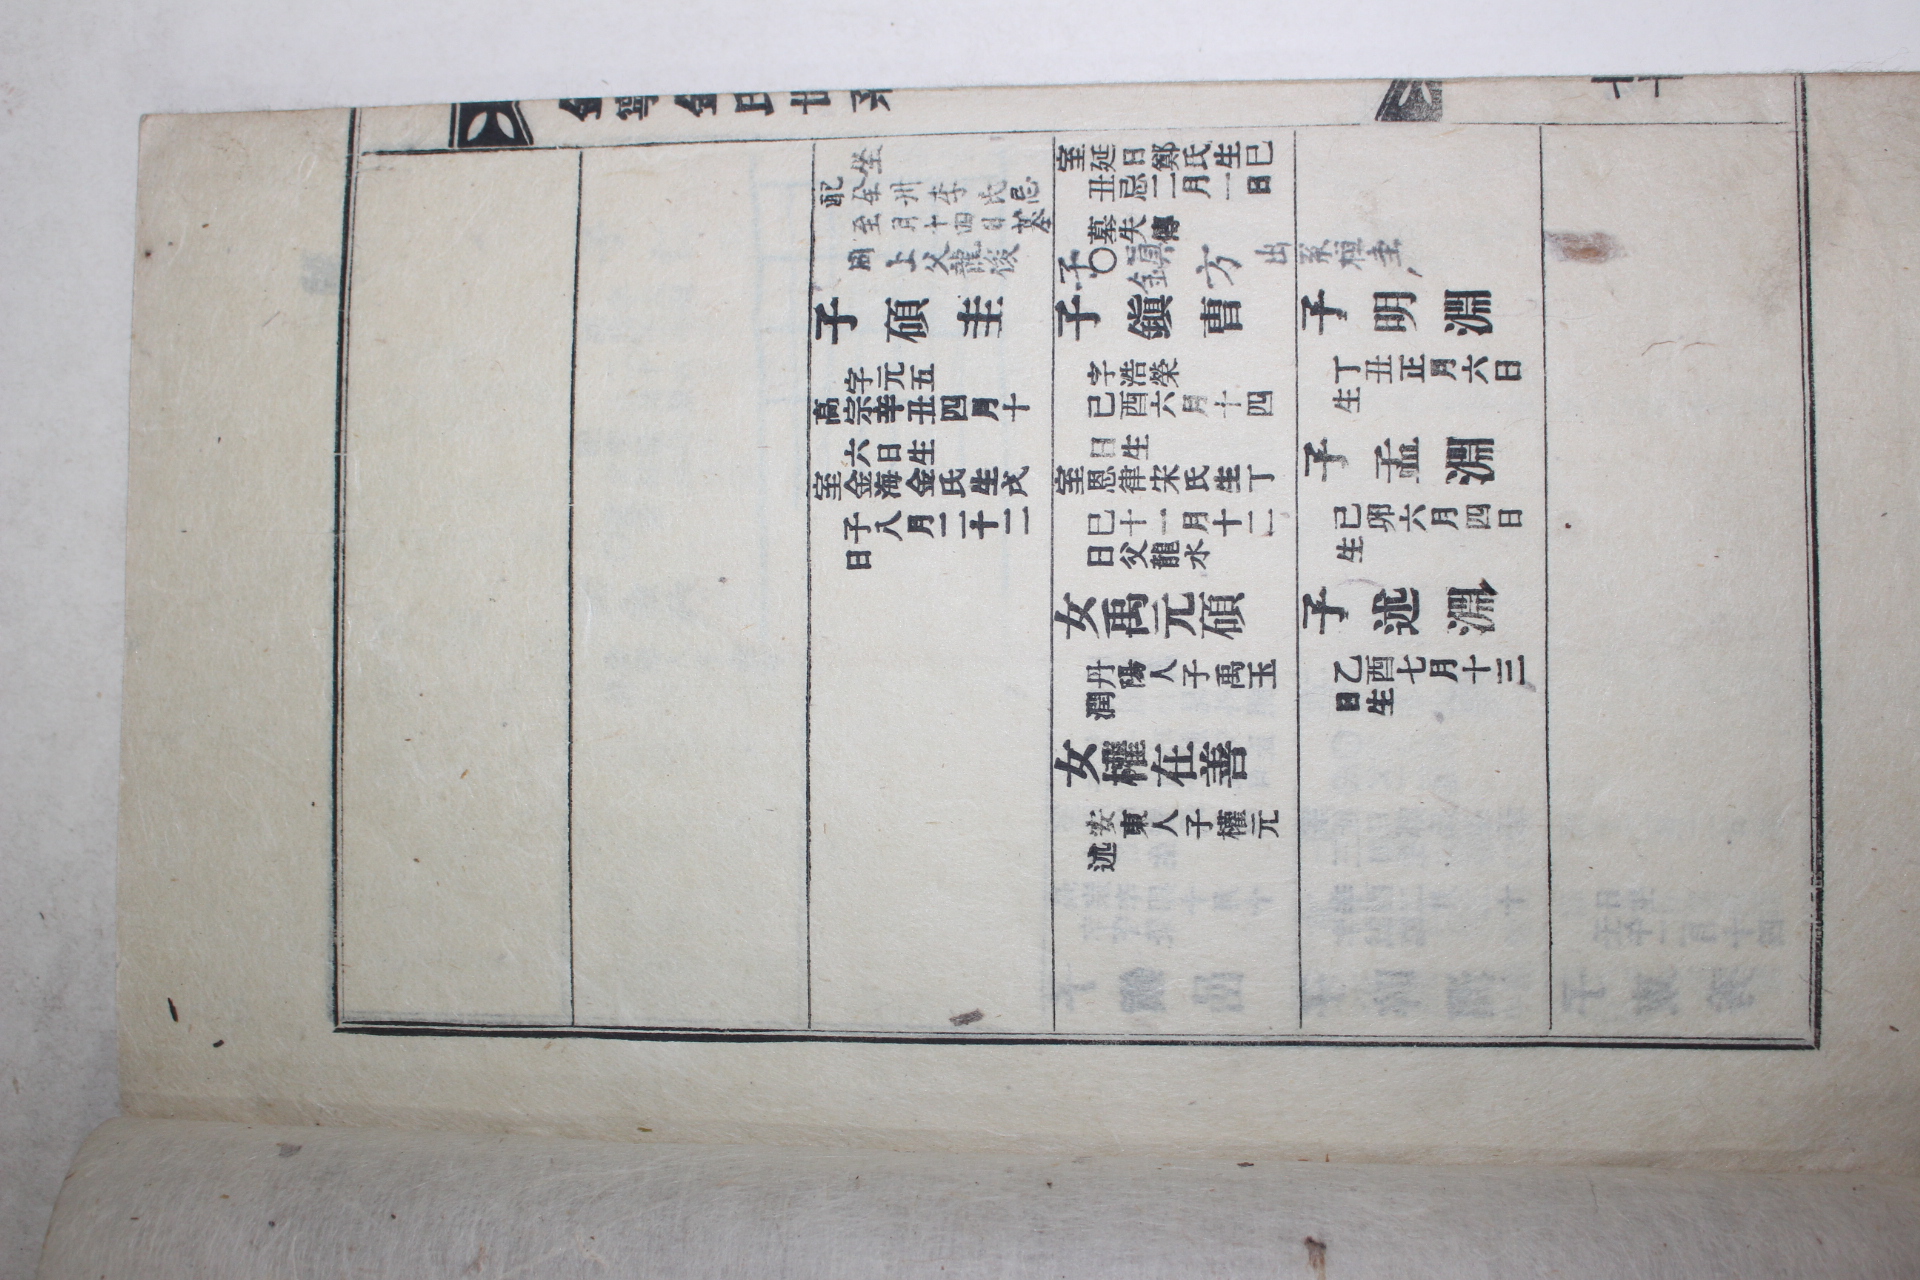 金寧金氏世系
坐
配全州李氏忌
至月十四日墓
同上父龍俊
子碩圭
字元五
高宗辛丑四月十
六日生
室金海金氏生戌
子八月二十二
日
室延日鄭氏生巳
丑忌二月一日
墓失傳
子○鎭方
出系桓圭
子鎭曺
字浩榮
己酉六月十四
日生
室恩律宋氏生丁
巳十一月十二
日父龍水
女禹元碩
丹陽人子禹玉
潤
女權在善
安東人子權元
述
子明淵
丁丑正月六日
生
子孟淵
己卯六月四日
生
子述淵
乙酉七月十三
日生